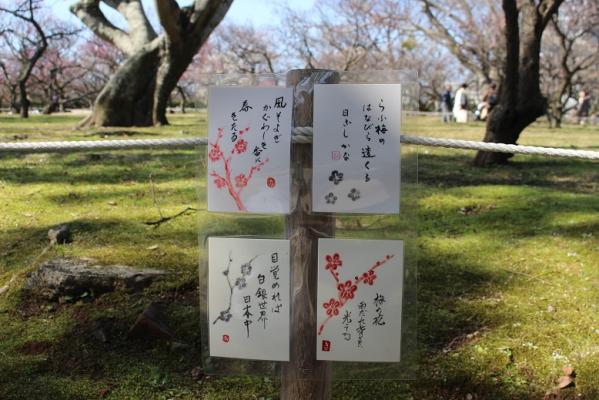 らふ梅の
はなびら遠くる
日ふしかな
風そよぎ
かぐわしき香に
春
きたる
梅の花
光てる
目覚めれば
白銀世界
日本中